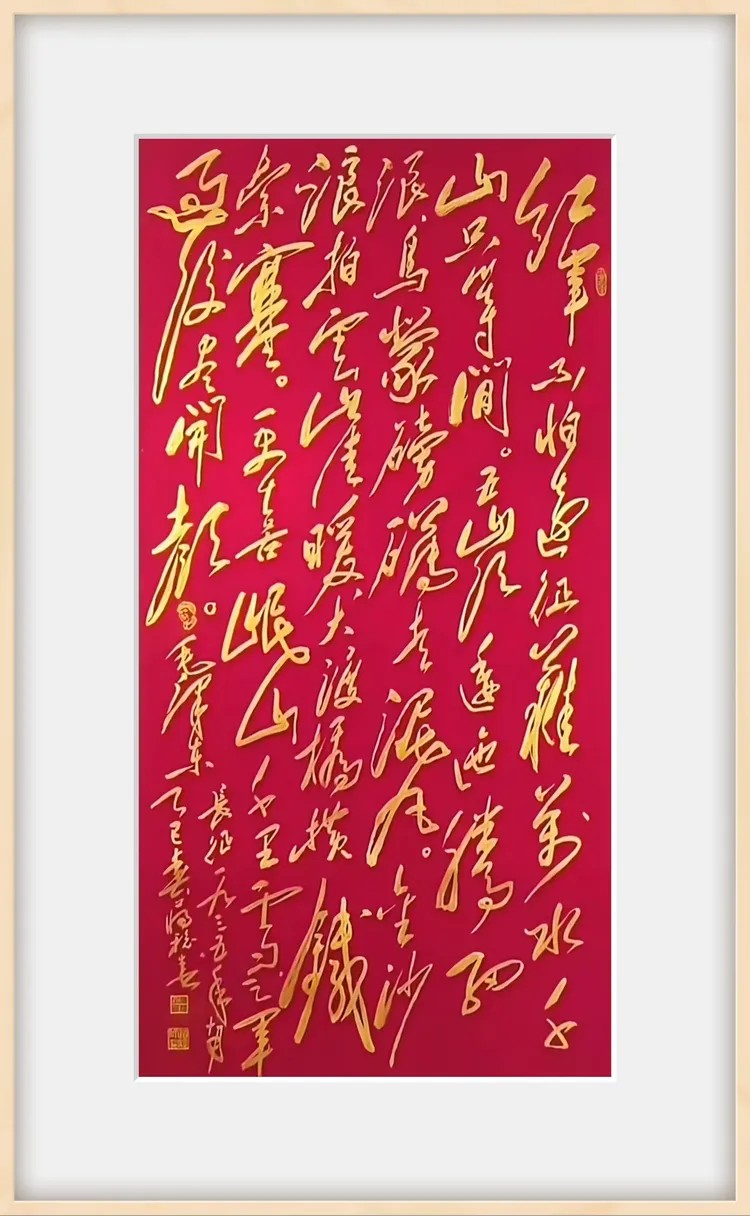 紅軍不怕遠征難萬水千
山只等閒。五嶺逶迤騰細
浪烏蒙磅礴走泥丸。金沙
浪拍雲崖暖大渡橋橫鐵
索寒。更喜岷山千里雪三軍
過後盡開顏。
毛澤東
長征一九三五年十月
乙巳春